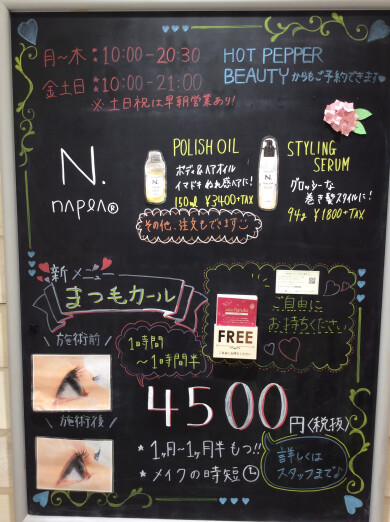 月〜木 10:00-20:30
金土日 10:00-21:00
※土日祝は早朝営業あり!
HOT PEPPER
BEAUTYからもご予約できます
N.
napla®
POLISH OIL
ボディ&ヘアオイル
イマドキぬれ感ヘアに!
150ml ¥3400+TAX
STYLING
SERUM
グロッシーな
巻き髪スタイルに!
94g ¥1800+TAX
その他、注文もできます
新メニュー
まつ毛カール
施術前
1時間
〜1時間半
施術後
ご自由に
お持ちください
FREE
4500円〈税抜〉
*1ヶ月〜1ヶ月半もつ!!
*メイクの時短
詳しくは
スタッフまで♪